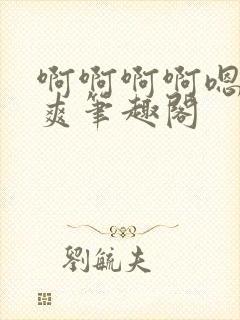 啊啊啊啊嗯
爽筆趣閣
劉毓夫